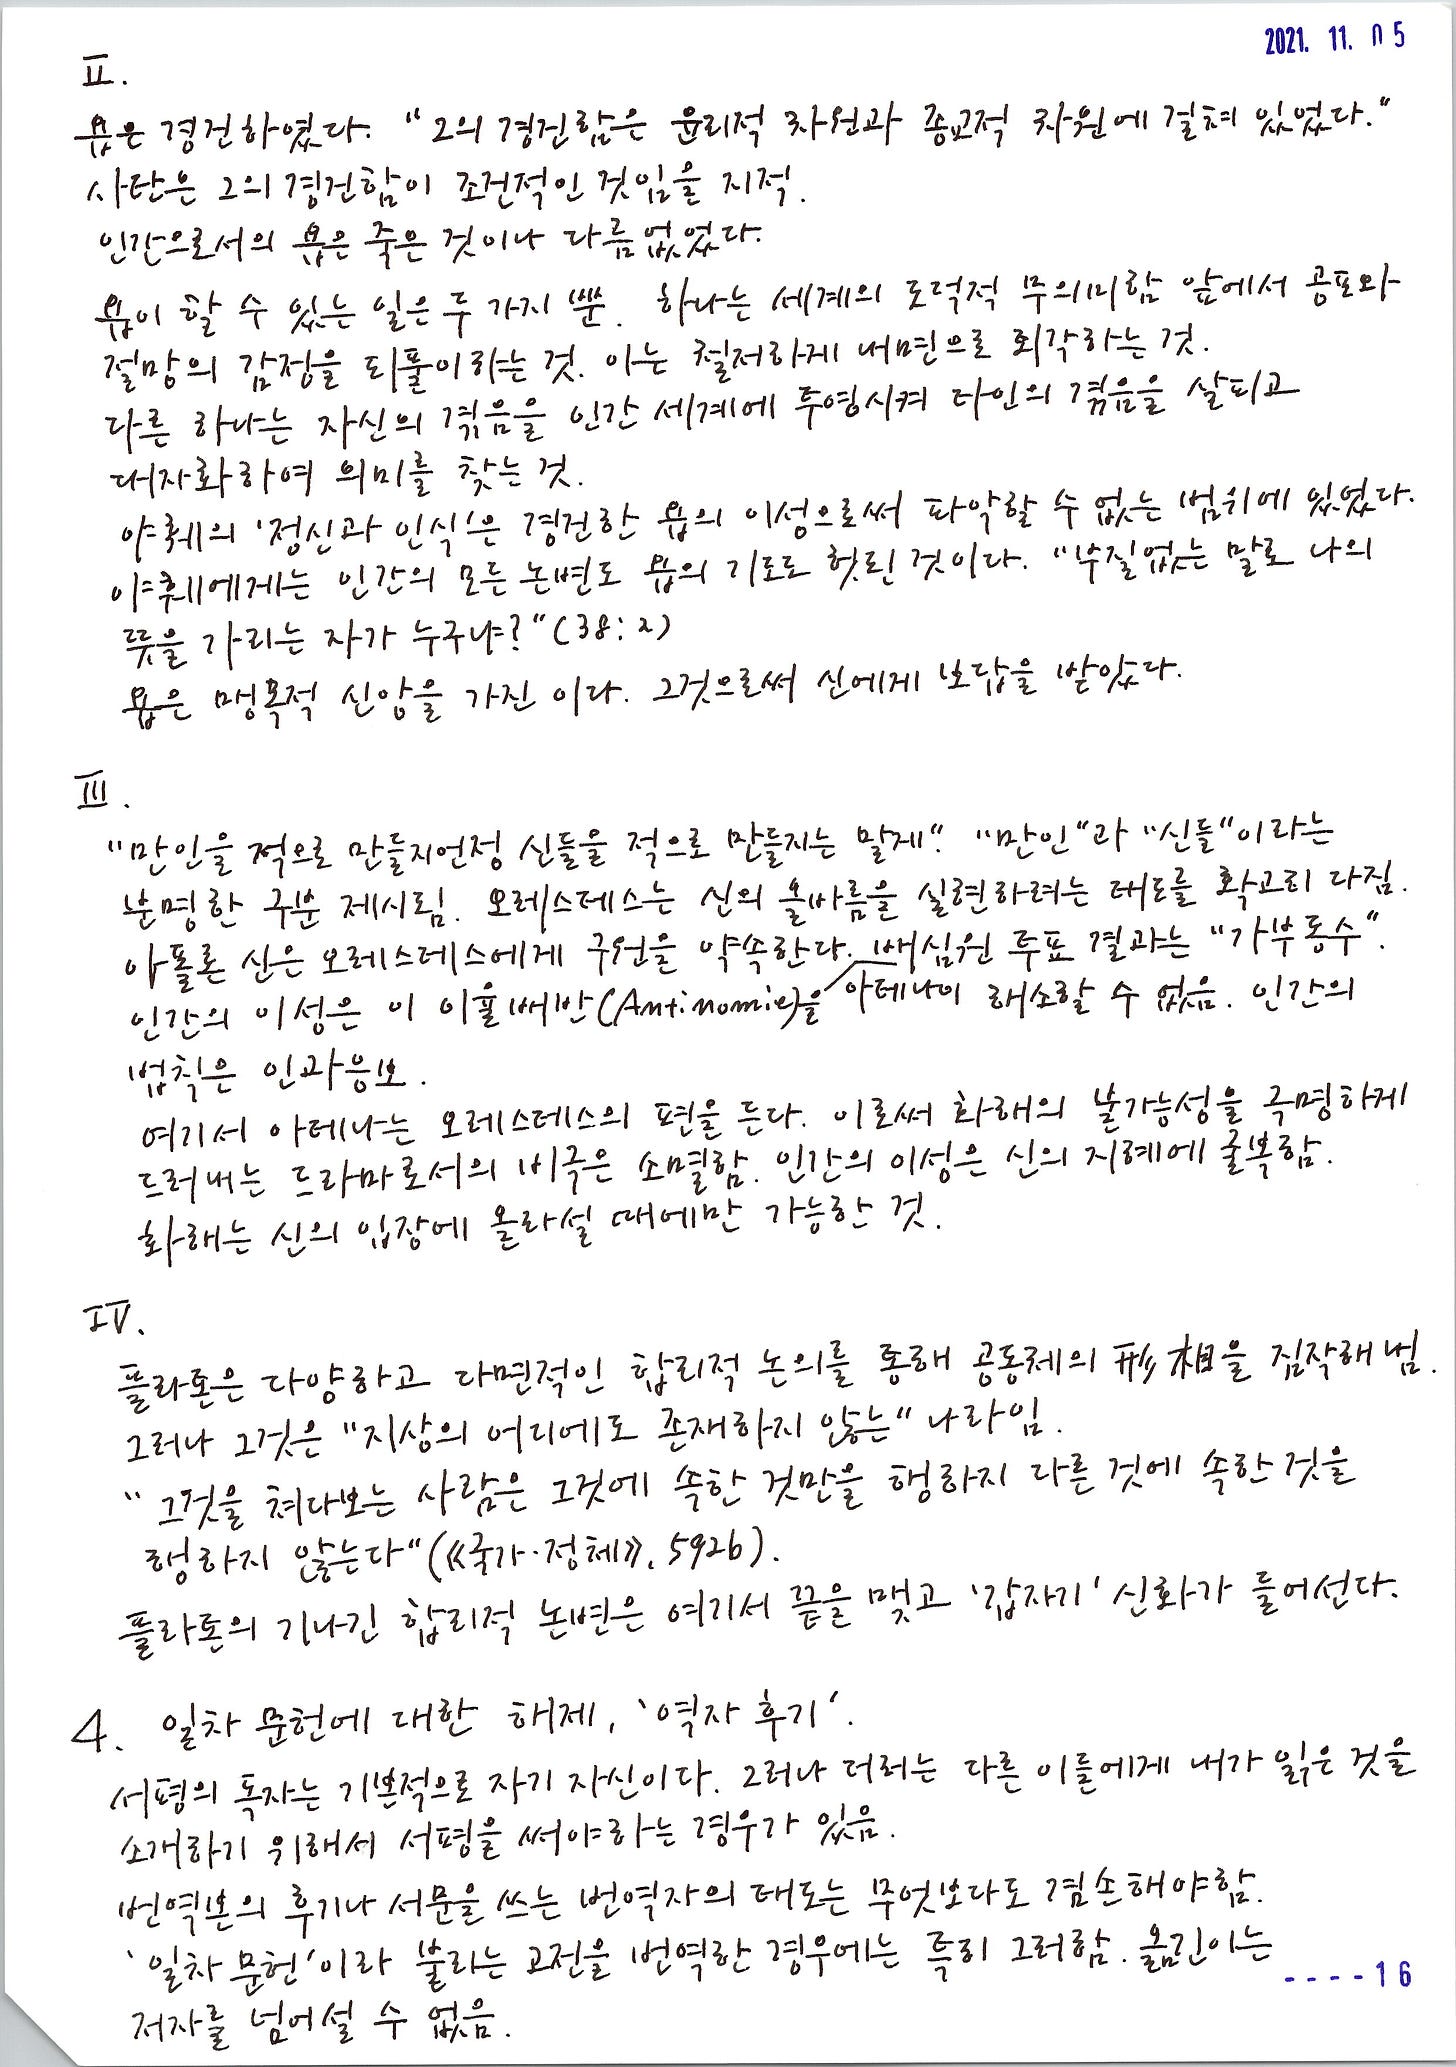 2021. 11. 05
II.
욥은 경건하였다. "그의 경건함은 윤리적 차원과 종교적 차원에 걸쳐 있었다."
사탄은 그의 경건함이 조건적인 것임을 지적.
인간으로서의 욥은 죽은 것이나 다름없었다.
욥이 할 수 있는 일은 두 가지 뿐. 하나는 세계의 도덕적 무의미함 앞에서 공포와
절망의 감정을 되풀이하는 것. 이는 철저하게 내면으로 회각하는 것.
다른 하나는 자신의 겪음을 인간 세계에 투영시켜 타인의 겪음을 살피고
대자화하여 의미를 찾는 것.
야훼의 '정신과 인식'은 경건한 욥의 이성으로써 파악할 수 없는 범위에 있었다.
야훼에게는 인간의 모든 논변도 욥의 기도도 헛된 것이다. "부질없는 말로 나의
뜻을 가리는 자가 누구냐?"(38:2)
욥은 맹목적 신앙을 가진 이다. 그것으로써 신에게 보답을 받았다.
III.
"만인을 적으로 만들지언정 신들을 적으로 만들지는 말게". "만인"과 "신들"이라는
분명한 구분 제시됨. 오레스테스는 신의 올바름을 실현하려는 태도를 확고히 다짐.
아폴론 신은 오레스테스에게 구원을 약속한다. 배심원 투표 결과는 "가부동수".
인간의 이성은 이 이율배반(Antinomie)을 아테나이 해소할 수 없음. 인간의
법칙은 인과응보.
여기서 아테나는 오레스테스의 편을 든다. 이로써 화해의 불가능성을 극명하게
드러내는 드라마로서의 비극은 소멸함. 인간의 이성은 신의 지혜에 굴복함.
화해는 신의 입장에 올라설 때에만 가능한 것.
IV.
플라톤은 다양하고 다면적인 합리적 논의를 통해 공동체의 形相을 짐작해 봄.
그러나 그것은 "지상의 어디에도 존재하지 않는" 나라임.
"그것을 쳐다보는 사람은 그것에 속한 것만을 행하지 다른 것에 속한 것을
행하지 않는다"(《국가·정체》, 592b).
플라톤의 기나긴 합리적 논변은 여기서 끝을 맺고 '갑자기' 신화가 들어선다.
4. 일차 문헌에 대한 해제, '역자 후기'.
서평의 독자는 기본적으로 자기 자신이다. 그러나 더러는 다른 이들에게 내가 읽은 것을
소개하기 위해서 서평을 써야하는 경우가 있음.
번역본의 후기나 서문을 쓰는 번역자의 태도는 무엇보다도 겸손해야함.
'일차 문헌'이라 불리는 고전을 번역한 경우에는 특히 그러함. 옮긴이는
저자를 넘어설 수 없음.
----16